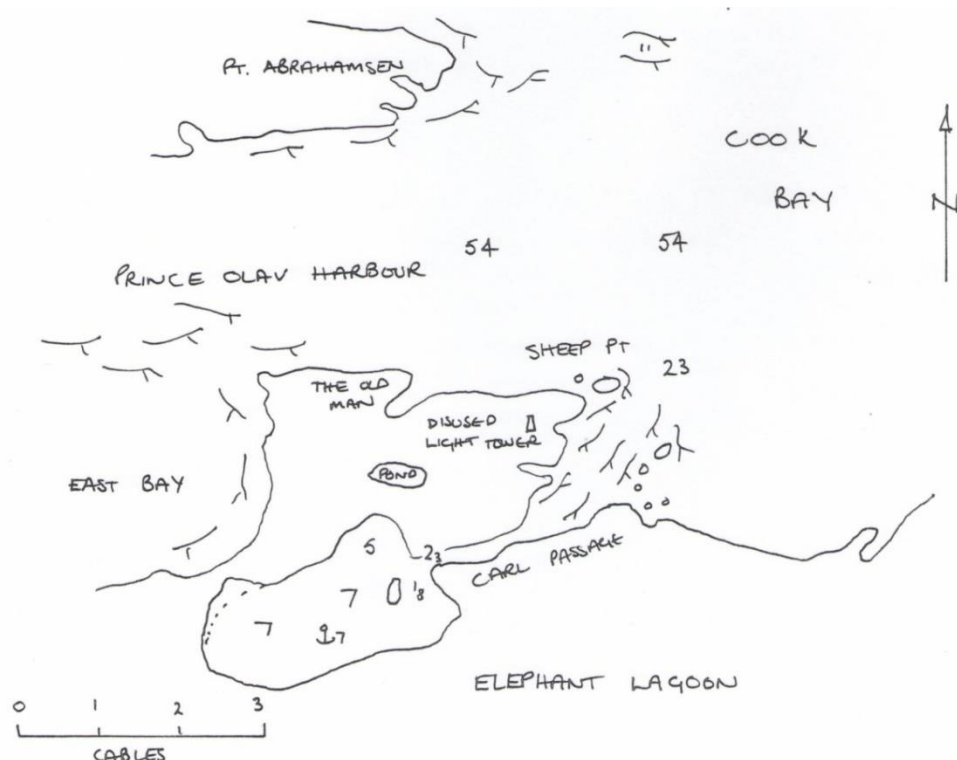 PT. ABRAHAMSEN
11
COOK
BAY
N
54
54
PRINCE OLAV HARBOUR
SHEEP PT
23
THE OLD
MAN
DISUSED
LIGHT TOWER
POND
EAST BAY
5
2₃
CARL PASSAGE
1₈
7
7
7
ELEPHANT LAGOON
0 1 2 3
CABLES